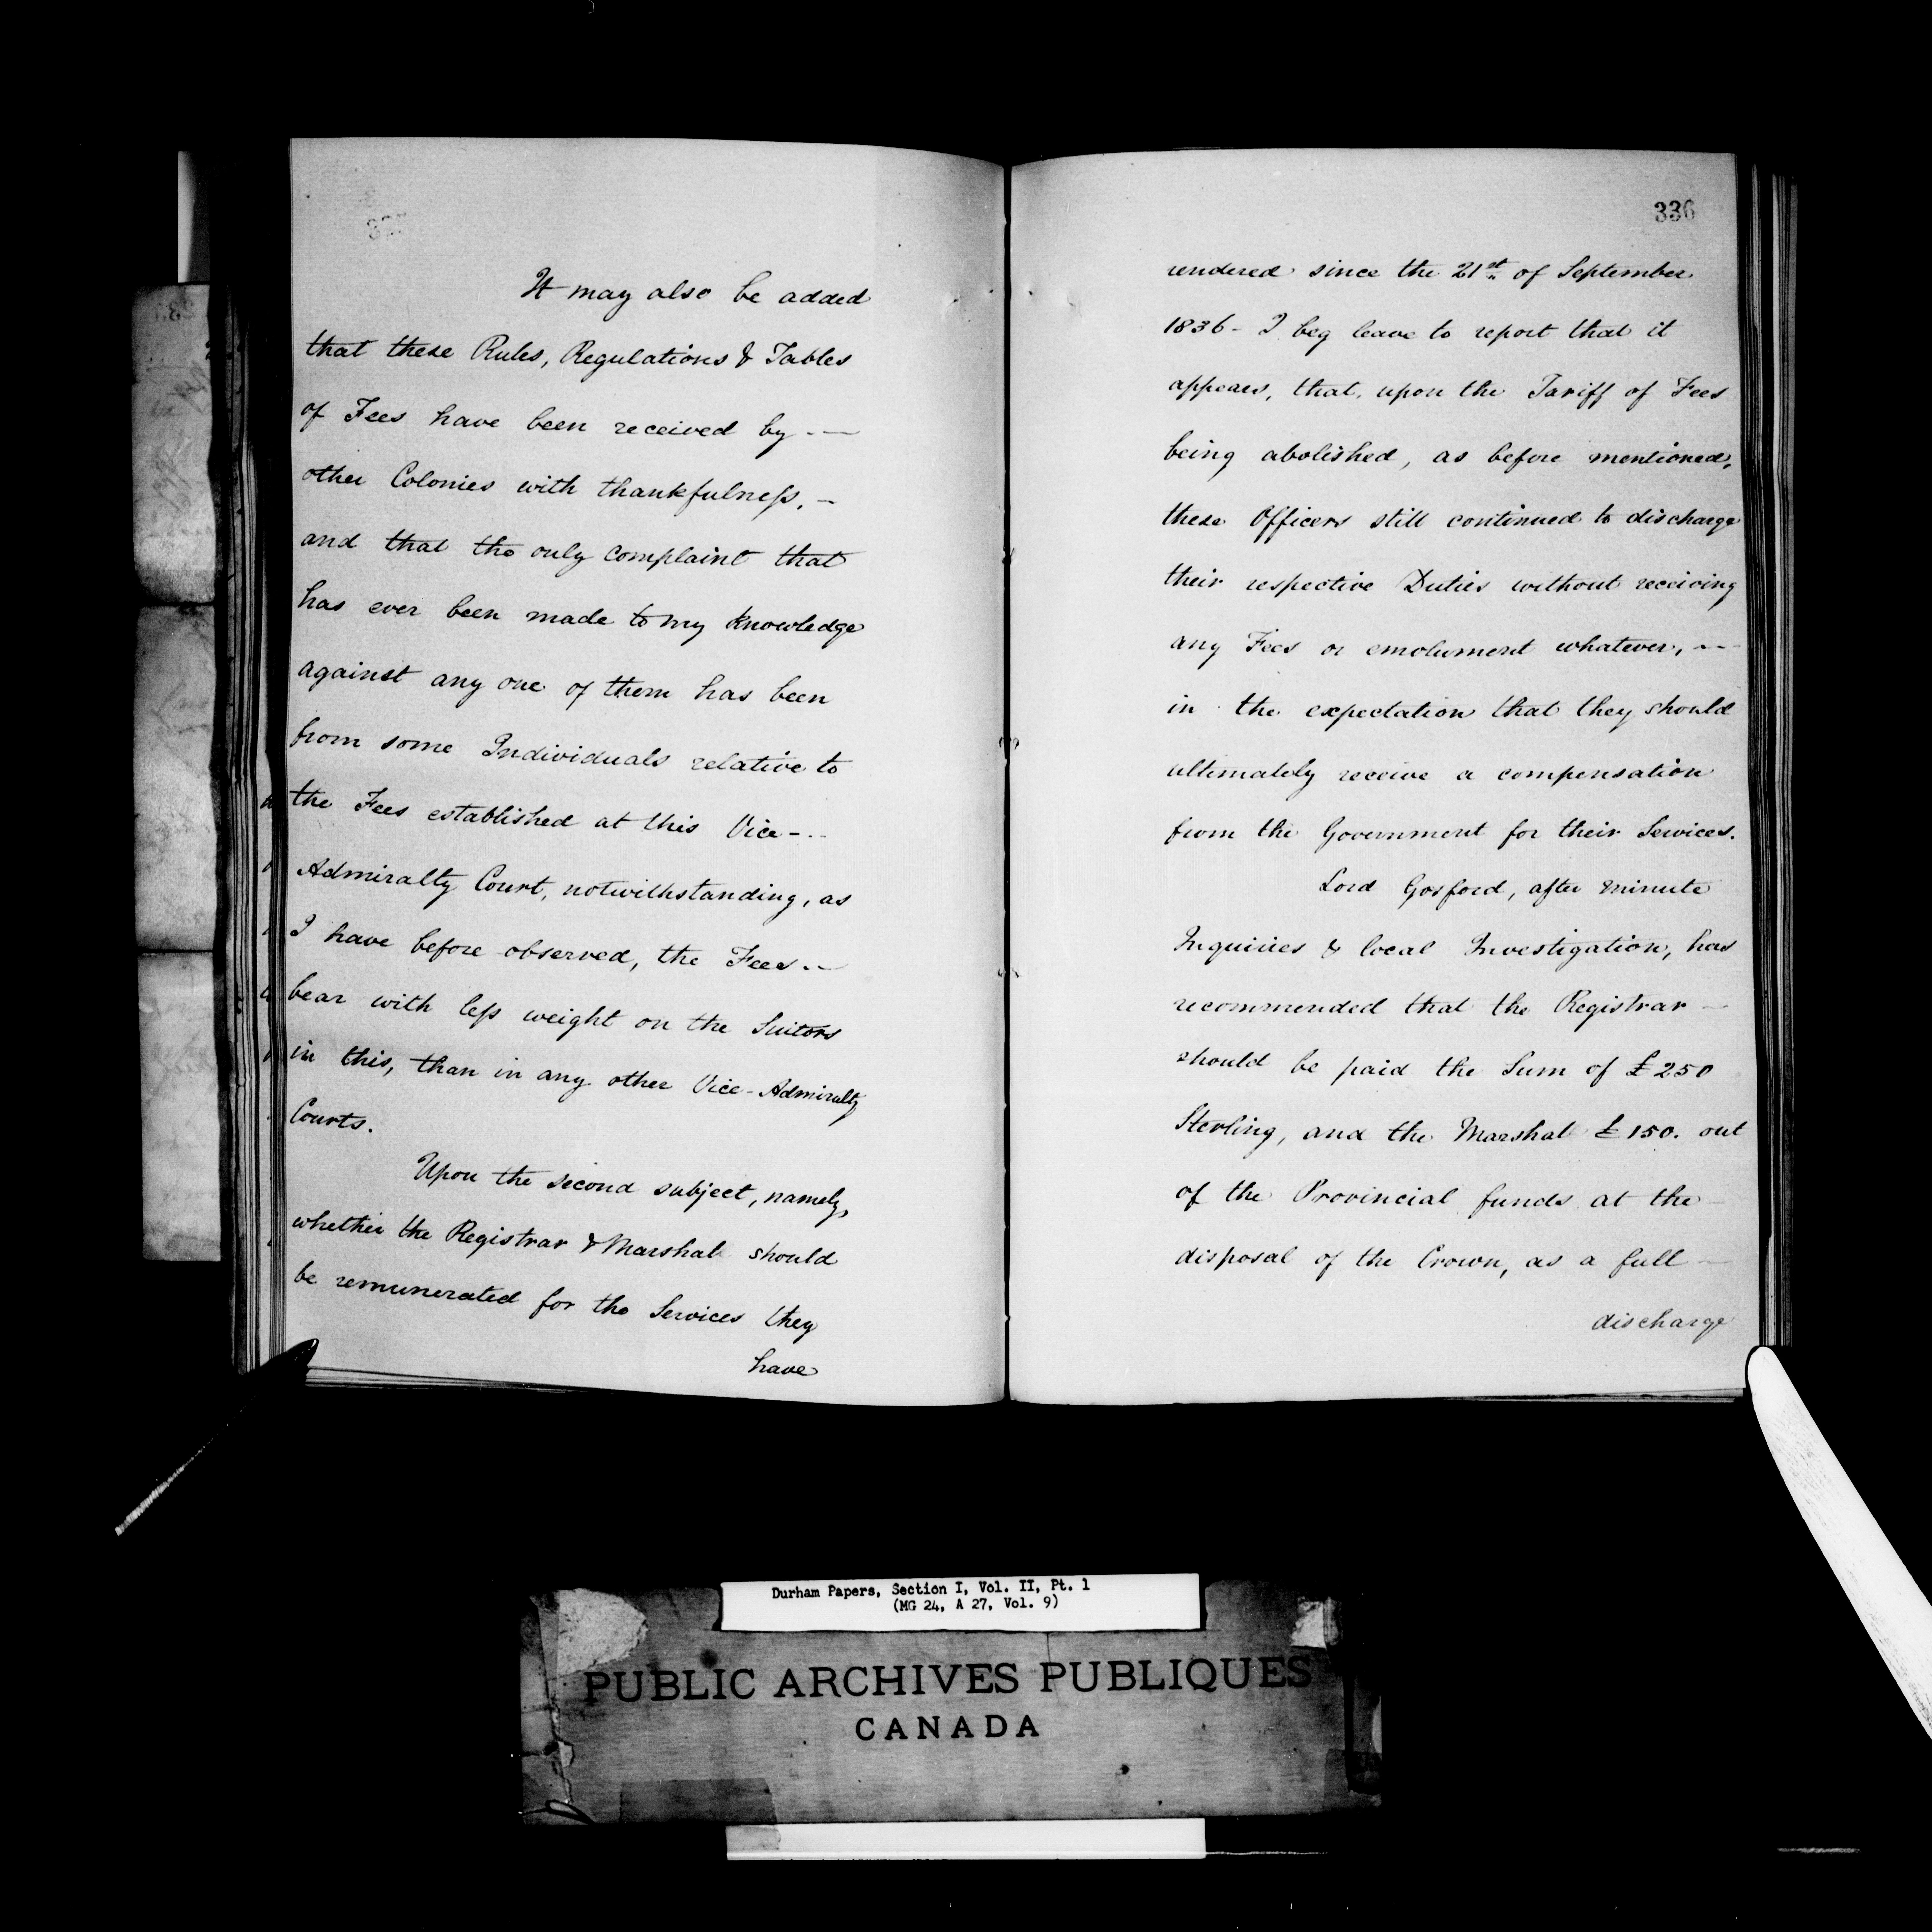 It may also be added
that these Rules, Regulations & Tables
of Fees have been received by -—
other Colonies with thankfulness, -
and that the only complaint that
has ever been made to my knowledge
against any one of them has been
from some Individuals relative to
the Fees established at this Vice-
Admiralty Court, notwithstanding, as
I have before observed, the Fees -
bear with less weight on the Suitors
in this, than in any other Vice-Admiralty
Courts.
Upon the second subject, namely,
whether the Registrar & Marshal should
be remunerated for the Services they
have
336
rendered since the 21st of September
1836 - I beg leave to report that it
appears, that, upon the Tariff of Fees
being abolished, as before mentioned,
these Officers still continued to discharge
their respective Duties without receiving
any Fees or emolument whatever, -
in the expectation that they should
ultimately receive a compensation
from the Government for their Services.
Lord Gosford, after minute
Inquiries & local Investigation, has
recommended that the Registrar —
should be paid the Sum of £250
Sterling, and the Marshal £150. out
of the Provincial funds at the —
disposal of the Crown, as a full —
discharge
Durham Papers, Section I, Vol. II, Pt. 1
(MG 24, A 27, Vol. 9)
PUBLIC ARCHIVES PUBLIQUES
CANADA